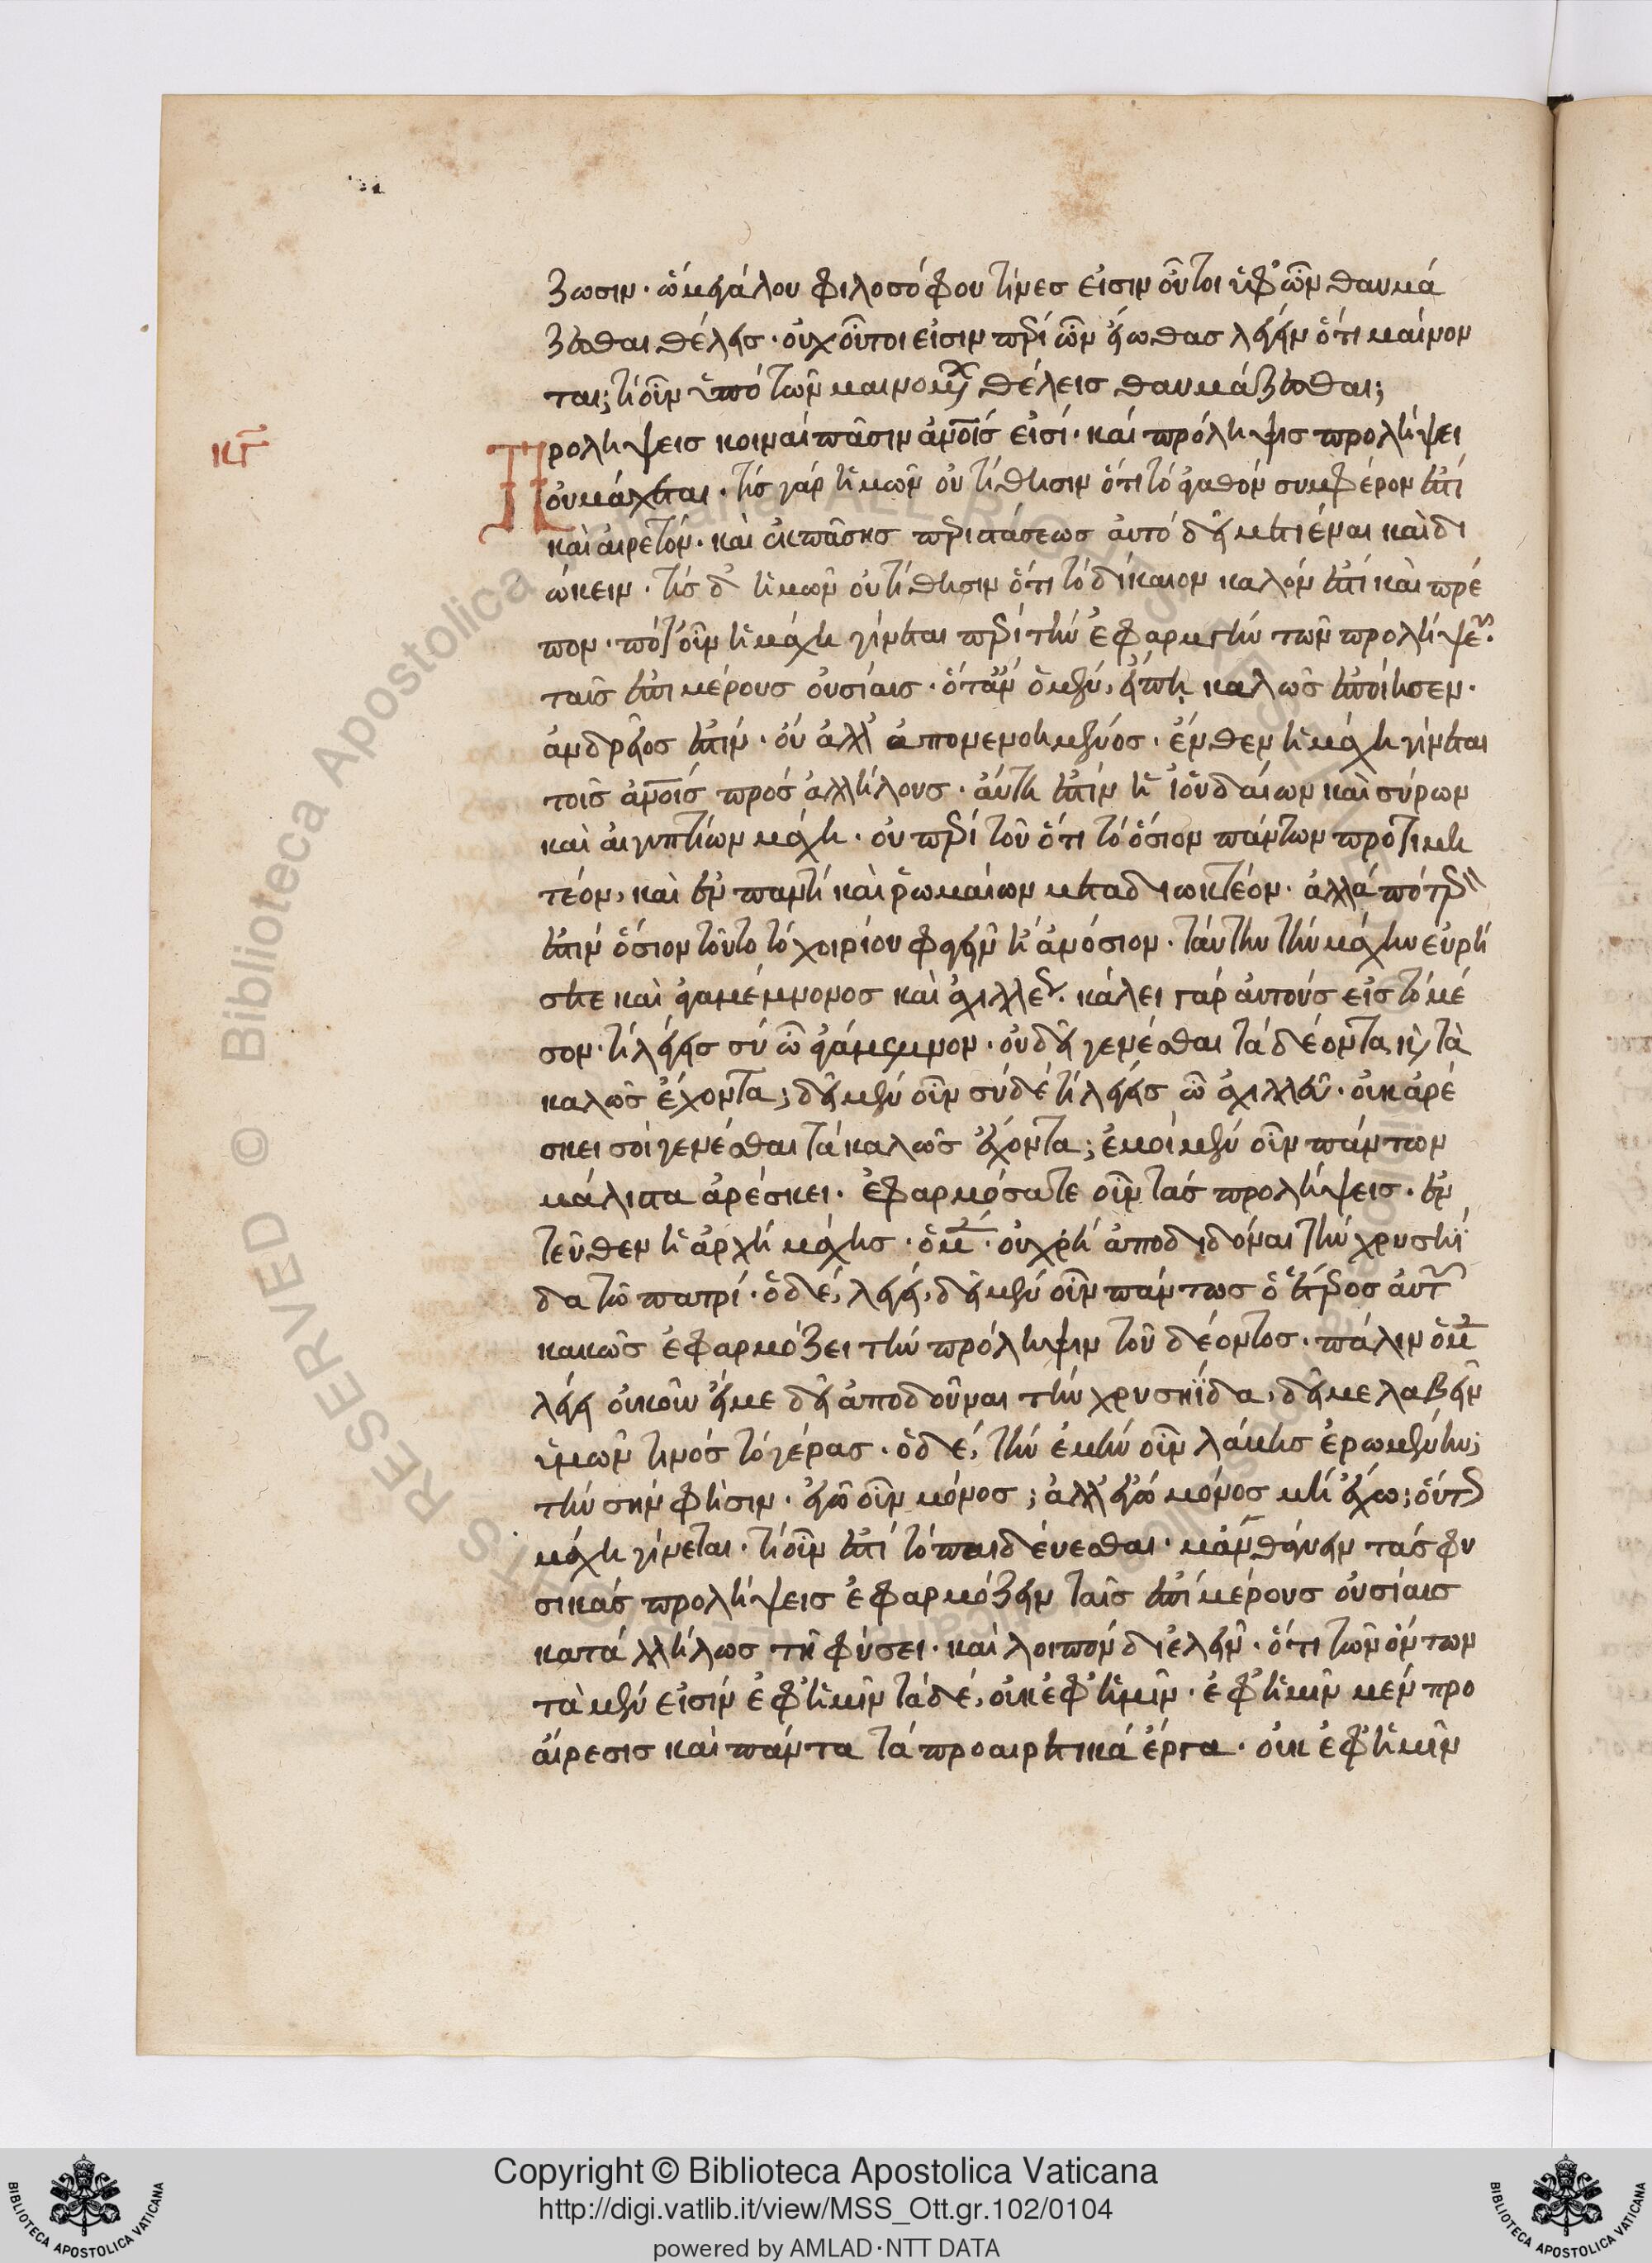 ζωσιν· ὦ μεγάλου φιλοσόφου τίνες εἰσὶν οὗτοι ὑφ' ὧν θαυμά
ζεσθαι θέλεις· οὐχ οὗτοι εἰσὶν περὶ ὧν εἴωθας λέγειν ὅτι μαίνον
ται; τί οὖν ὑπὸ τῶν μαινομένων θέλεις θαυμάζεσθαι;
κγ
Προλήψεις κοιναὶ πᾶσιν ἀνοις εἰσί· καὶ πρόληψις προλήψει
οὐ μάχεται· τίς γὰρ ἡμῶν οὐ τίθησιν ὅτι τὸ ἀγαθὸν συμφέρον ἐστὶ
καὶ αἱρετόν· καὶ ἐκ πάσης περιστάσεως αὐτὸ δεῖ μετιέναι καὶ δι
ώκειν· τίς δ' ἡμῶν οὐ τίθησιν ὅτι τὸ δίκαιον καλόν ἐστι καὶ πρέ
πον· πότ' οὖν ἡ μάχη γίνεται περὶ τὴν ἐφαρμογὴν τῶν προλήψεων
ταῖς ἐπὶ μέρους οὐσίαις· ὅταν ὁ μὲν, εἴπῃ καλῶς ἐποίησεν·
ἀνδρεῖος ἐστίν· οὐ ἀλλ' ἀπονενοημένος· ἔνθεν ἡ μάχη γίνεται
τοῖς ἀνοις πρὸς ἀλλήλους· αὕτη ἐστὶν ἡ ἰουδαίων καὶ σύρων
καὶ αἰγυπτίων μάχη· οὐ περὶ τοῦ ὅτι τὸ ὅσιον πάντων προτιμη
τέον, καὶ ἐν παντὶ καὶ ῥωμαίων μεταδιωκτέον· ἀλλὰ πότερον
ἐστὶν ὅσιον τοῦτο τὸ χοιρίου φαγεῖν ἢ ἀνόσιον· ταύτην τὴν μάχην εὑρή
σετε καὶ ἀγαμέμνονος καὶ ἀχιλλέως· κάλει γὰρ αὐτοὺς εἰς τὸ μέ
σον· τί λέγεις σὺ ὦ ἀγάμεμνον· οὐ δεῖ γενέσθαι τὰ δέοντα καὶ τὰ
καλῶς ἔχοντα; δεῖ μὲν οὖν σὺ δὲ τί λέγεις ὦ ἀχιλλεῦ· οὐκ ἀρέ
σκει σοὶ γενέσθαι τὰ καλῶς ἔχοντα; ἐμοὶ μὲν οὖν πάντων
μάλιστα ἀρέσκει· ἐφαρμόσατε οὖν τὰς προλήψεις· ἐν
τεῦθεν ἡ ἀρχὴ μάχης· ὁ μὲν· οὐ χρὴ ἀποδιδόναι τὴν χρυσηΐ
δα τῷ πατρί· ὁ δὲ, λέγει, δεῖ μὲν οὖν πάντως ὁ ἕτερος αὐτῶν
κακῶς ἐφαρμόζει τὴν πρόληψιν τοῦ δέοντος· πάλιν ὁ μὲν
λέγει οὐκοῦν εἴ με δεῖ ἀποδοῦναι τὴν χρυσηΐδα, δεῖ με λαβεῖν
ὑμῶν τινὸς τὸ γέρας· ὁ δὲ, τὴν ἐμὴν οὖν λάμῃς ἐρωμένην;
τὴν σήν φησιν· ἐγὼ οὖν μόνος; ἀλλ' ἐγὼ μόνος μὴ ἔχω; οὕτω
μάχη γίνεται· τί οὖν ἐστὶ τὸ παιδεύεσθαι· μανθάνειν τὰς φυ
σικὰς προλήψεις ἐφαρμόζειν ταῖς ἐπὶ μέρους οὐσίαις
καταλλήλως τῇ φύσει· καὶ λοιπὸν διελεῖν· ὅτι τῶν ὄντων
τὰ μὲν εἰσὶν ἐφ' ἡμῖν τὰ δὲ, οὐκ ἐφ' ἡμῖν· ἐφ' ἡμῖν μὲν προ
αίρεσις καὶ πάντα τὰ προαιρετικὰ ἔργα· οὐκ ἐφ' ἡμῖν
Copyright © Biblioteca Apostolica Vaticana
http://digi.vatlib.it/view/MSS_Ott.gr.102/0104
powered by AMLAD·NTT DATA